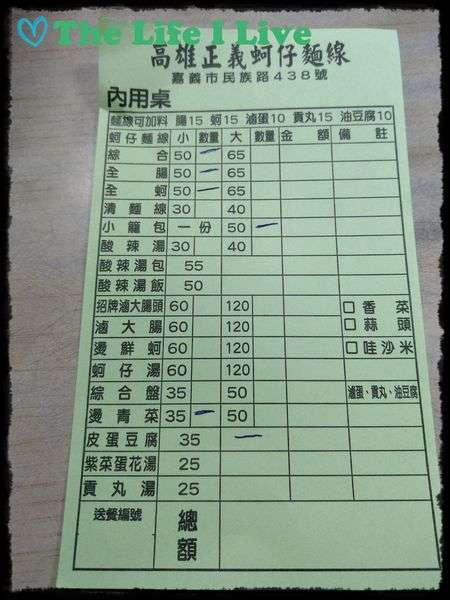 The Life I Live
高雄正義蚵仔麵線
嘉義市民族路438號
內用桌
麵線可加料 腸15 蚵15 滷蛋10 貢丸15 油豆腐10
蚵仔麵線 小 數量 大 數量 金額 備註
綜合 50 一 65
全腸 50 一 65
全蚵 50 一 65
清麵線 30 40
小籠包 一份 50 一
酸辣湯 30 40
酸辣湯包 55
酸辣湯飯 50
招牌滷大腸頭 60 120 □香菜
滷大腸 60 120 □蒜頭
燙鮮蚵 60 120 □哇沙米
蚵仔湯 60 120
綜合盤 35 50 滷蛋、貢丸、油豆腐
燙青菜 35 一 50
皮蛋豆腐 35 一
紫菜蛋花湯 25
貢丸湯 25
送餐編號 總額